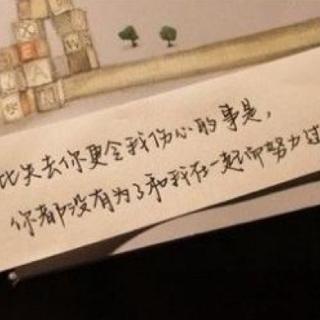 比失去你更令我伤心的事是，
你都没有为了和我在一起而努力过